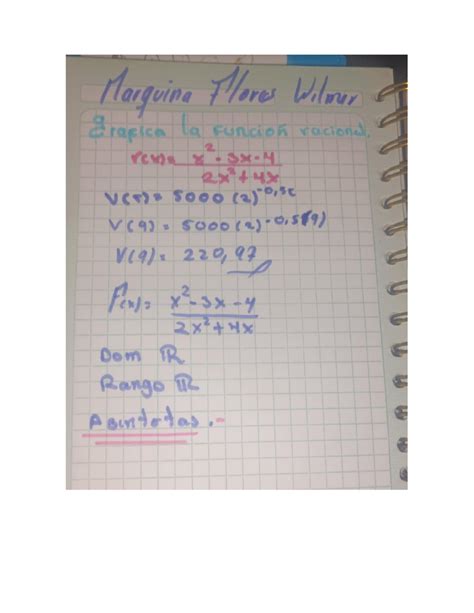 Marquina Flores Wilmur
Grafica la función racional.
r(x)= x² - 3x - 4
2x² + 4x
V(t)= 5000 (2)^-0,5t
V(9) = 5000 (2)^-0,5(9)
V(9)= 220,97
F(x)= x² - 3x - 4
2x² + 4x
Dom ℝ
Rango ℝ
Asintotas.-